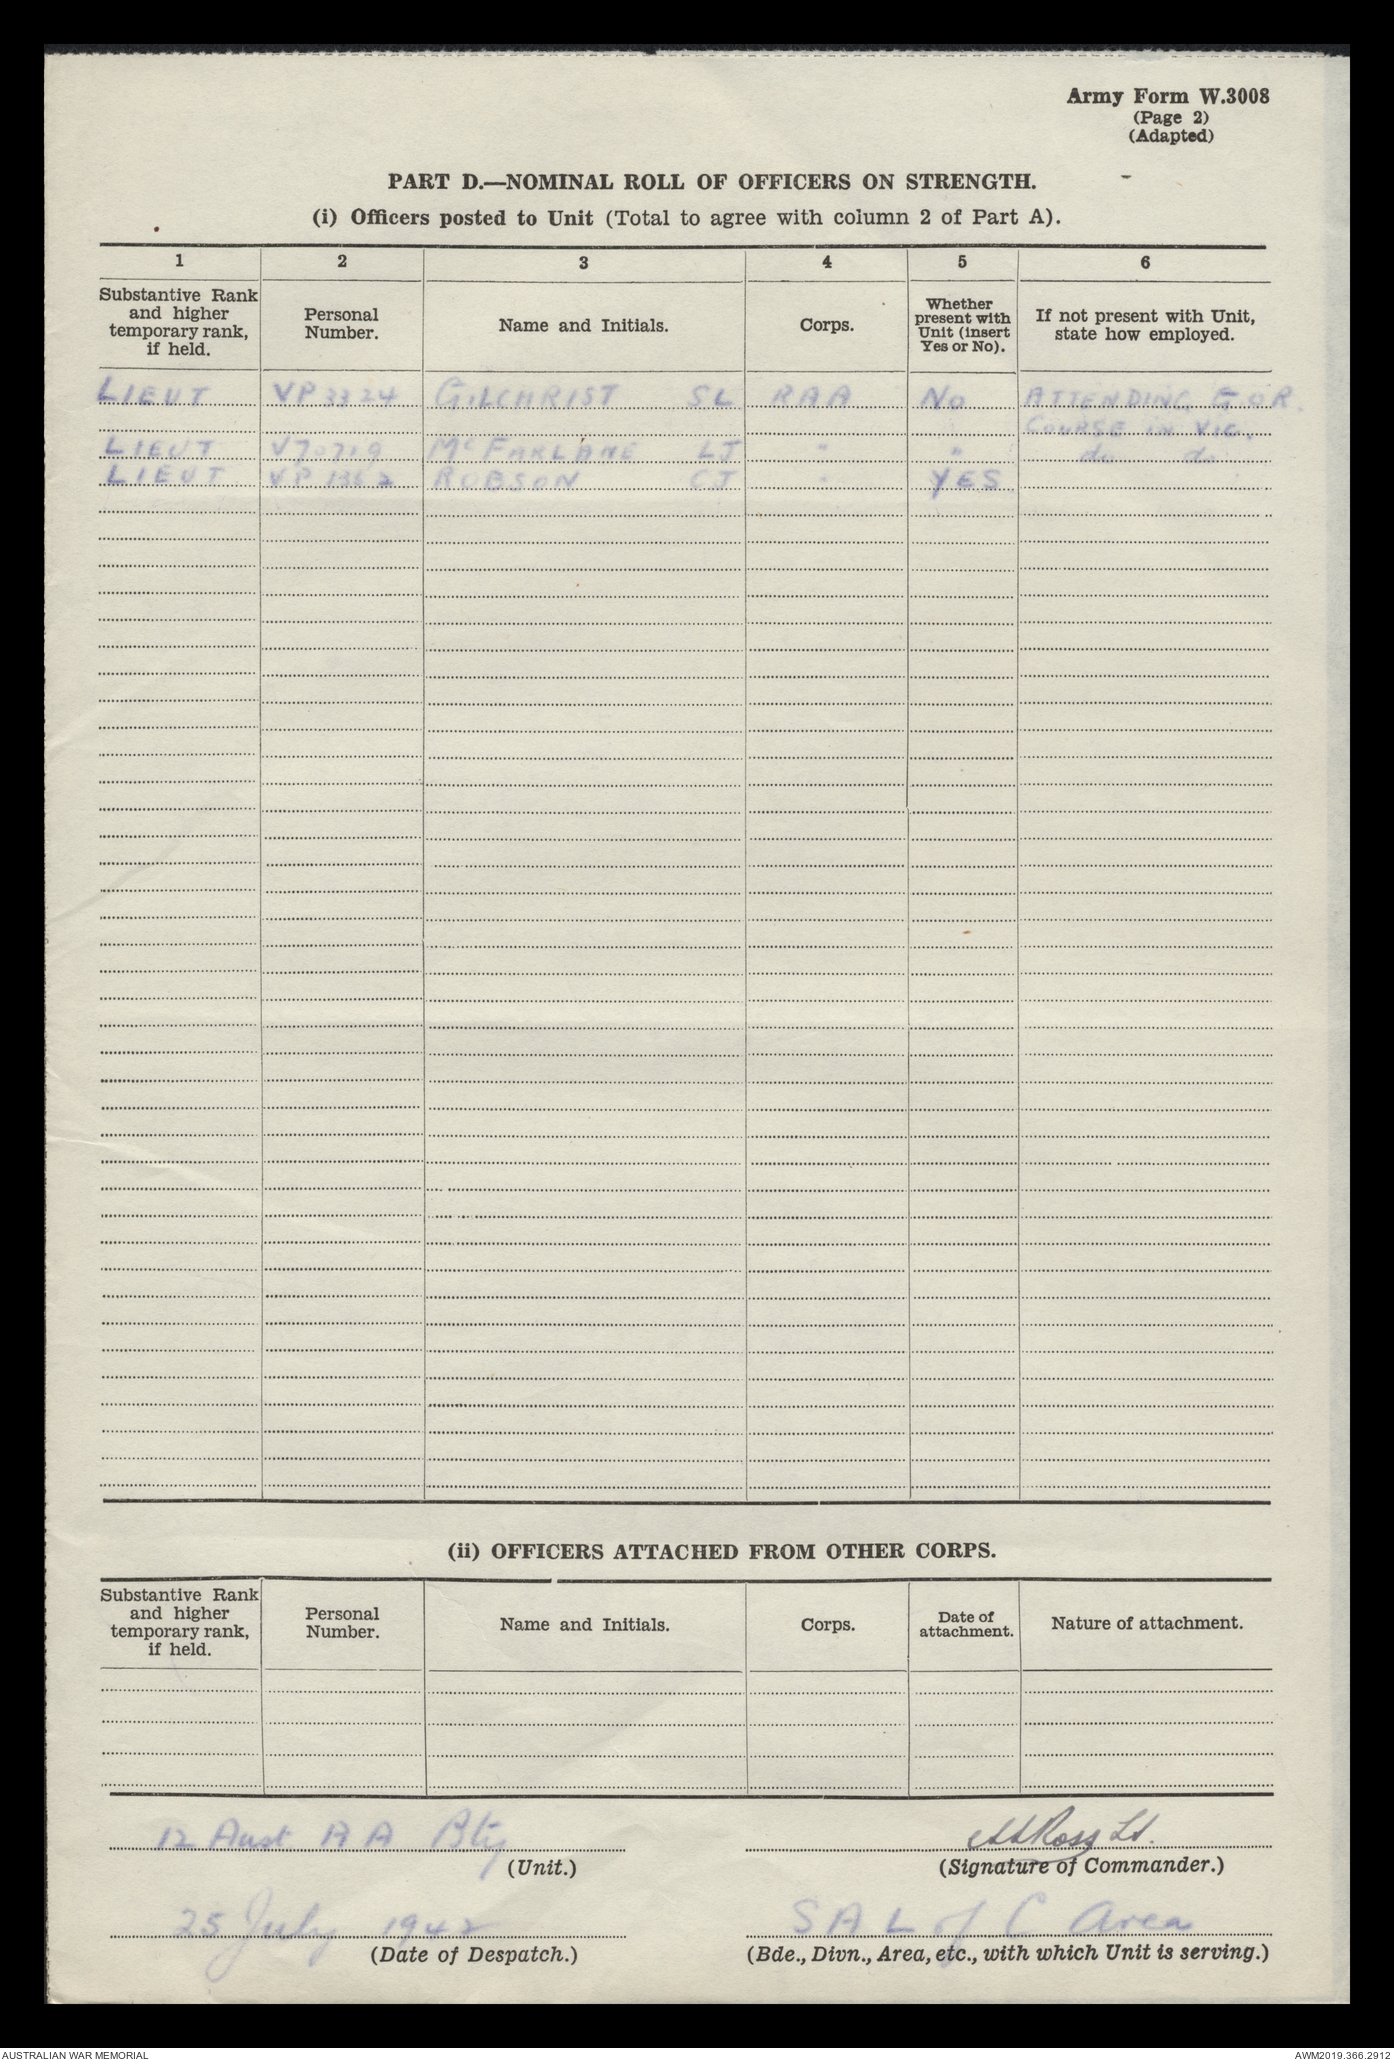 Army Form W.3008
(Page 2)
(Adapted)
PART D.—NOMINAL ROLL OF OFFICERS ON STRENGTH.
(i) Officers posted to Unit (Total to agree with column 2 of Part A).
1 2 3 4 5 6
Substantive Rank and higher temporary rank, if held. Personal Number. Name and Initials. Corps. Whether present with Unit (insert Yes or No). If not present with Unit, state how employed.
LIEUT VP3324 GILCHRIST SL RAA NO ATTENDING G.O.R.
COURSE IN VIC.
LIEUT V70719 McFARLANE LJ " " do do
LIEUT VP1362 ROBSON CJ " YES
(ii) OFFICERS ATTACHED FROM OTHER CORPS.
Substantive Rank and higher temporary rank, if held. Personal Number. Name and Initials. Corps. Date of attachment. Nature of attachment.
12 Aust AA Bty Ross Lt.
(Unit.) (Signature of Commander.)
25 July 1942 S A L of C Area
(Date of Despatch.) (Bde., Divn., Area, etc., with which Unit is serving.)
AUSTRALIAN WAR MEMORIAL AWM2019.366.2912